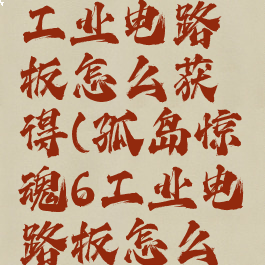 工业电路
板怎么获
得(孤岛惊
魂6工业电
路板怎么